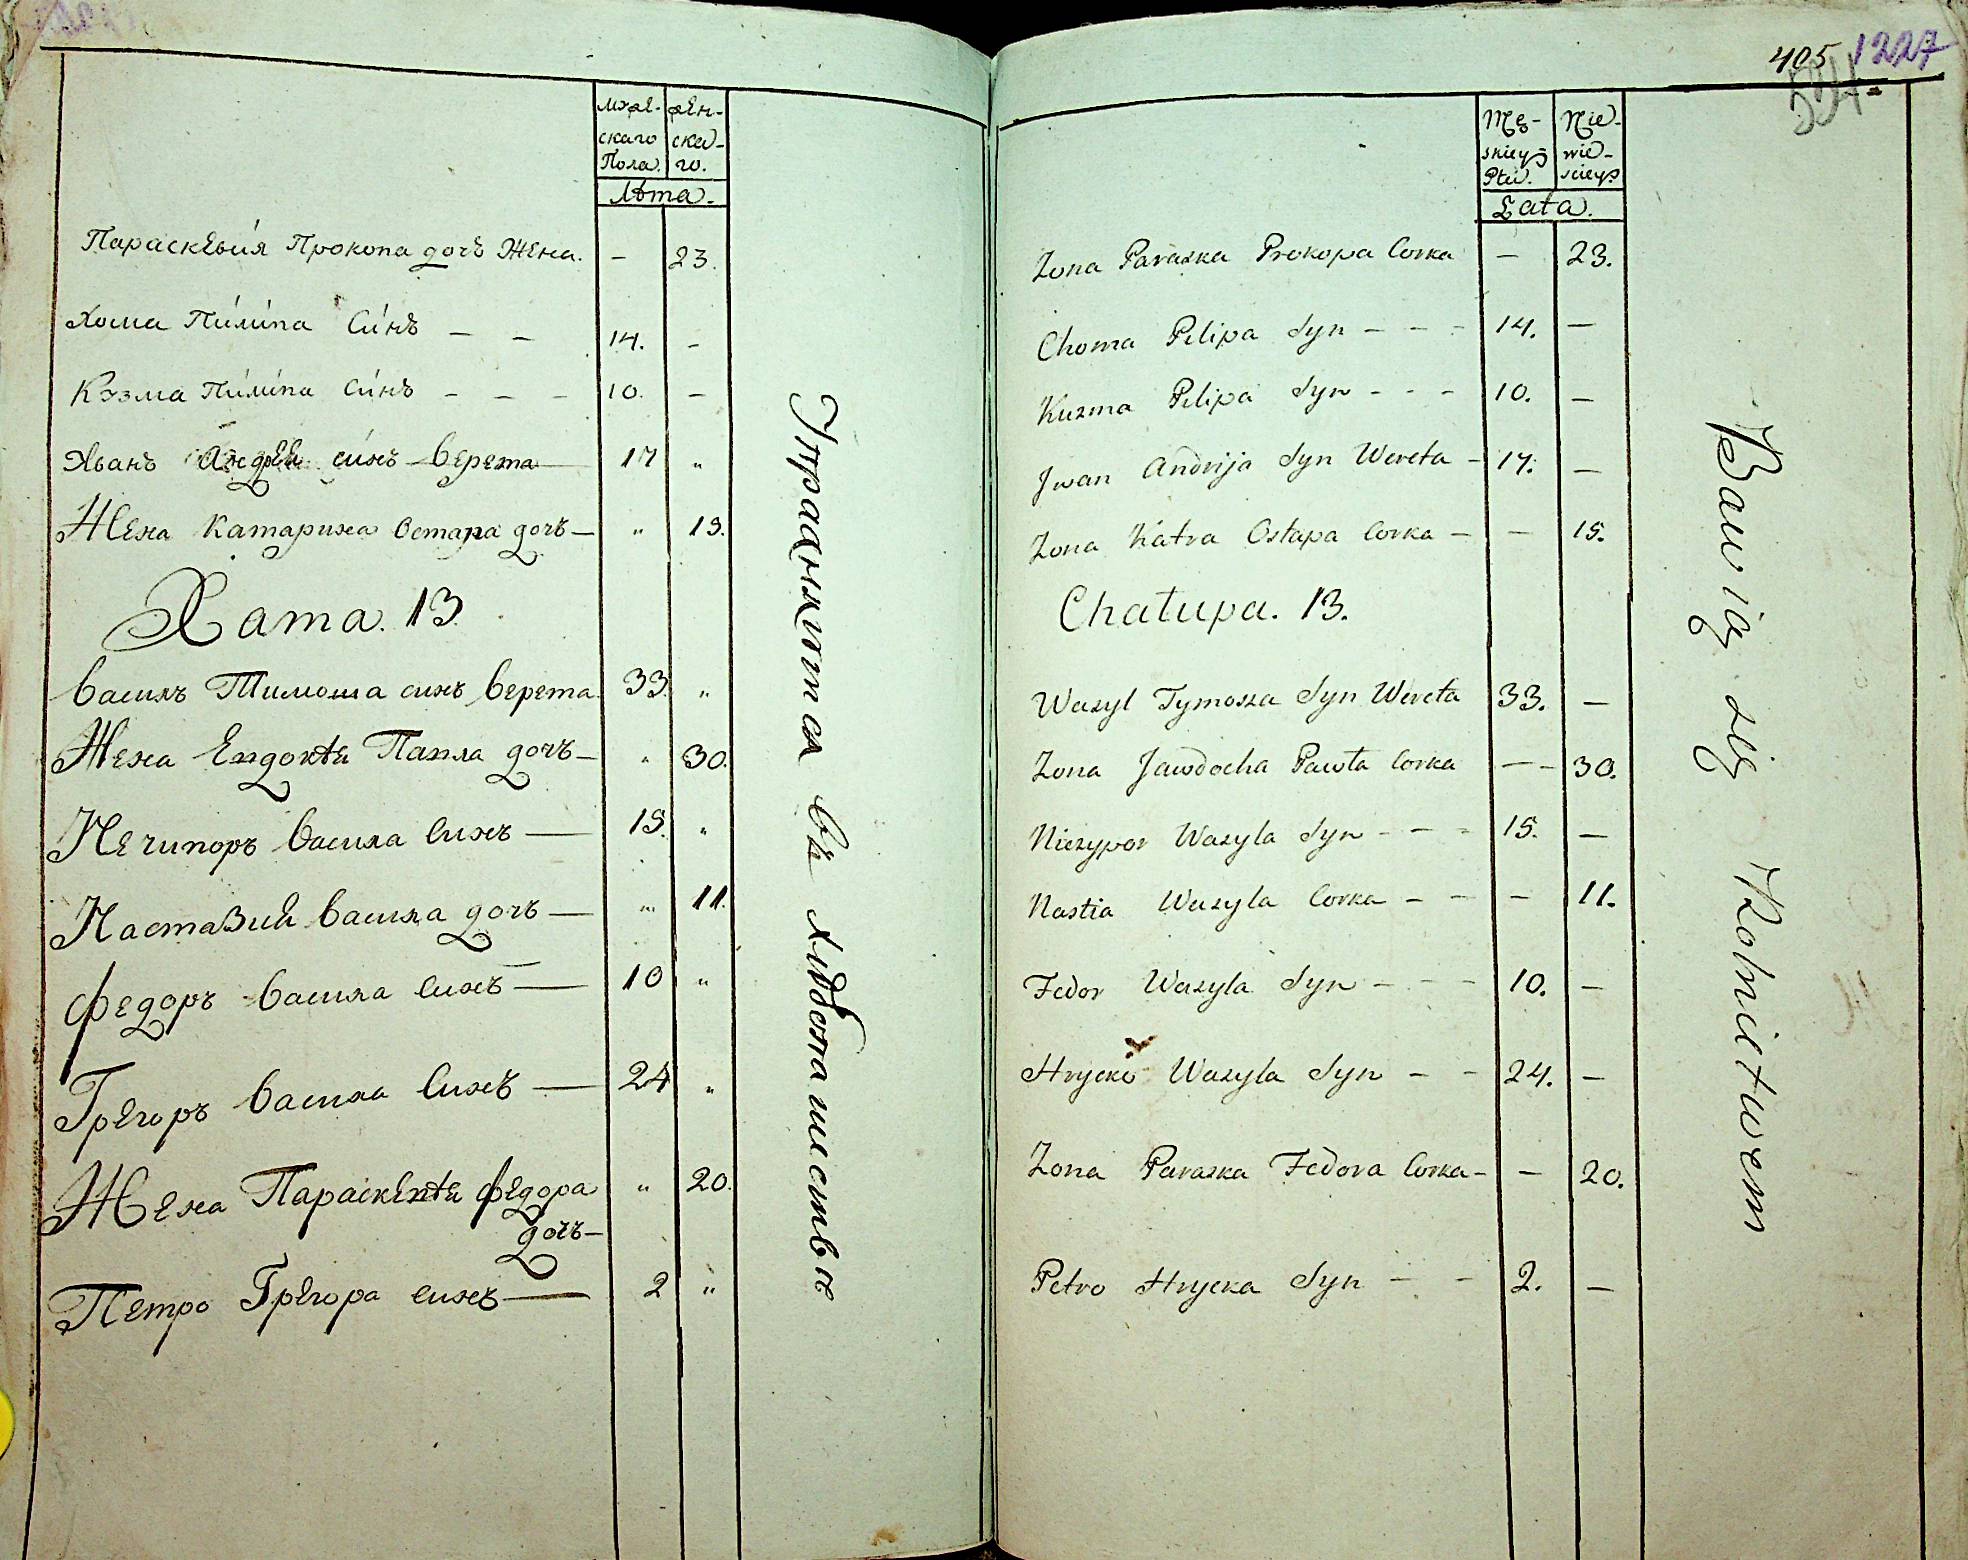 мужe-
скаго
Пола.
жен-
ска-
го.
Лѣта.
Параскевия Прокопа дочь Жена. — 23.
Хома Пилипа Синъ — — 14. —
Кузма Пилипа Синъ — — — 10. —
Иванъ Андрей синъ Верета — 17 "
Жена Катарина Остапа дочъ — " 15.
Хата. 13
Василъ Тимоша синъ Верета. 33. "
Жена Евдокѣи Павла дочъ — " 30.
Нечипоръ Васила Синъ — 15. "
Настазии Васила дочъ — " 11.
Федоръ Васила Синъ — 10 "
Грегоръ Васила Синъ — 24 "
Жена Параскевѣи Федора " 20.
дочъ —
Петро Грегора синъ — 2 "
Упражняютса въ хлѣбопашествѣ
405 1227
594
Mę-
skiey
Płci.
Nie-
wie-
sciey
Lata.
Zona Paraska Prokopa Corka — 23.
Choma Pilipa Syn - - - 14. —
Kuzma Pilipa Syn - - - 10. —
Jwan Andrija Syn Wereta - 17. —
Zona Katra Ostapa Corka — — 15.
Chałupa. 13.
Wasyl Tymosza Syn Wereta 33. —
Zona Jawdocha Pawła Corka — - 30.
Niczypor Wasyla Syn - - - 15. —
Nastia Wasyla Corka - - - 11.
Fedor Wasyla Syn - - - 10. —
Hrycko Wasyla Syn - - 24. —
Zona Paraska Fedora Corka - — 20.
Petro Hrycka Syn - - 2. —
Bawią się Rolnictwem